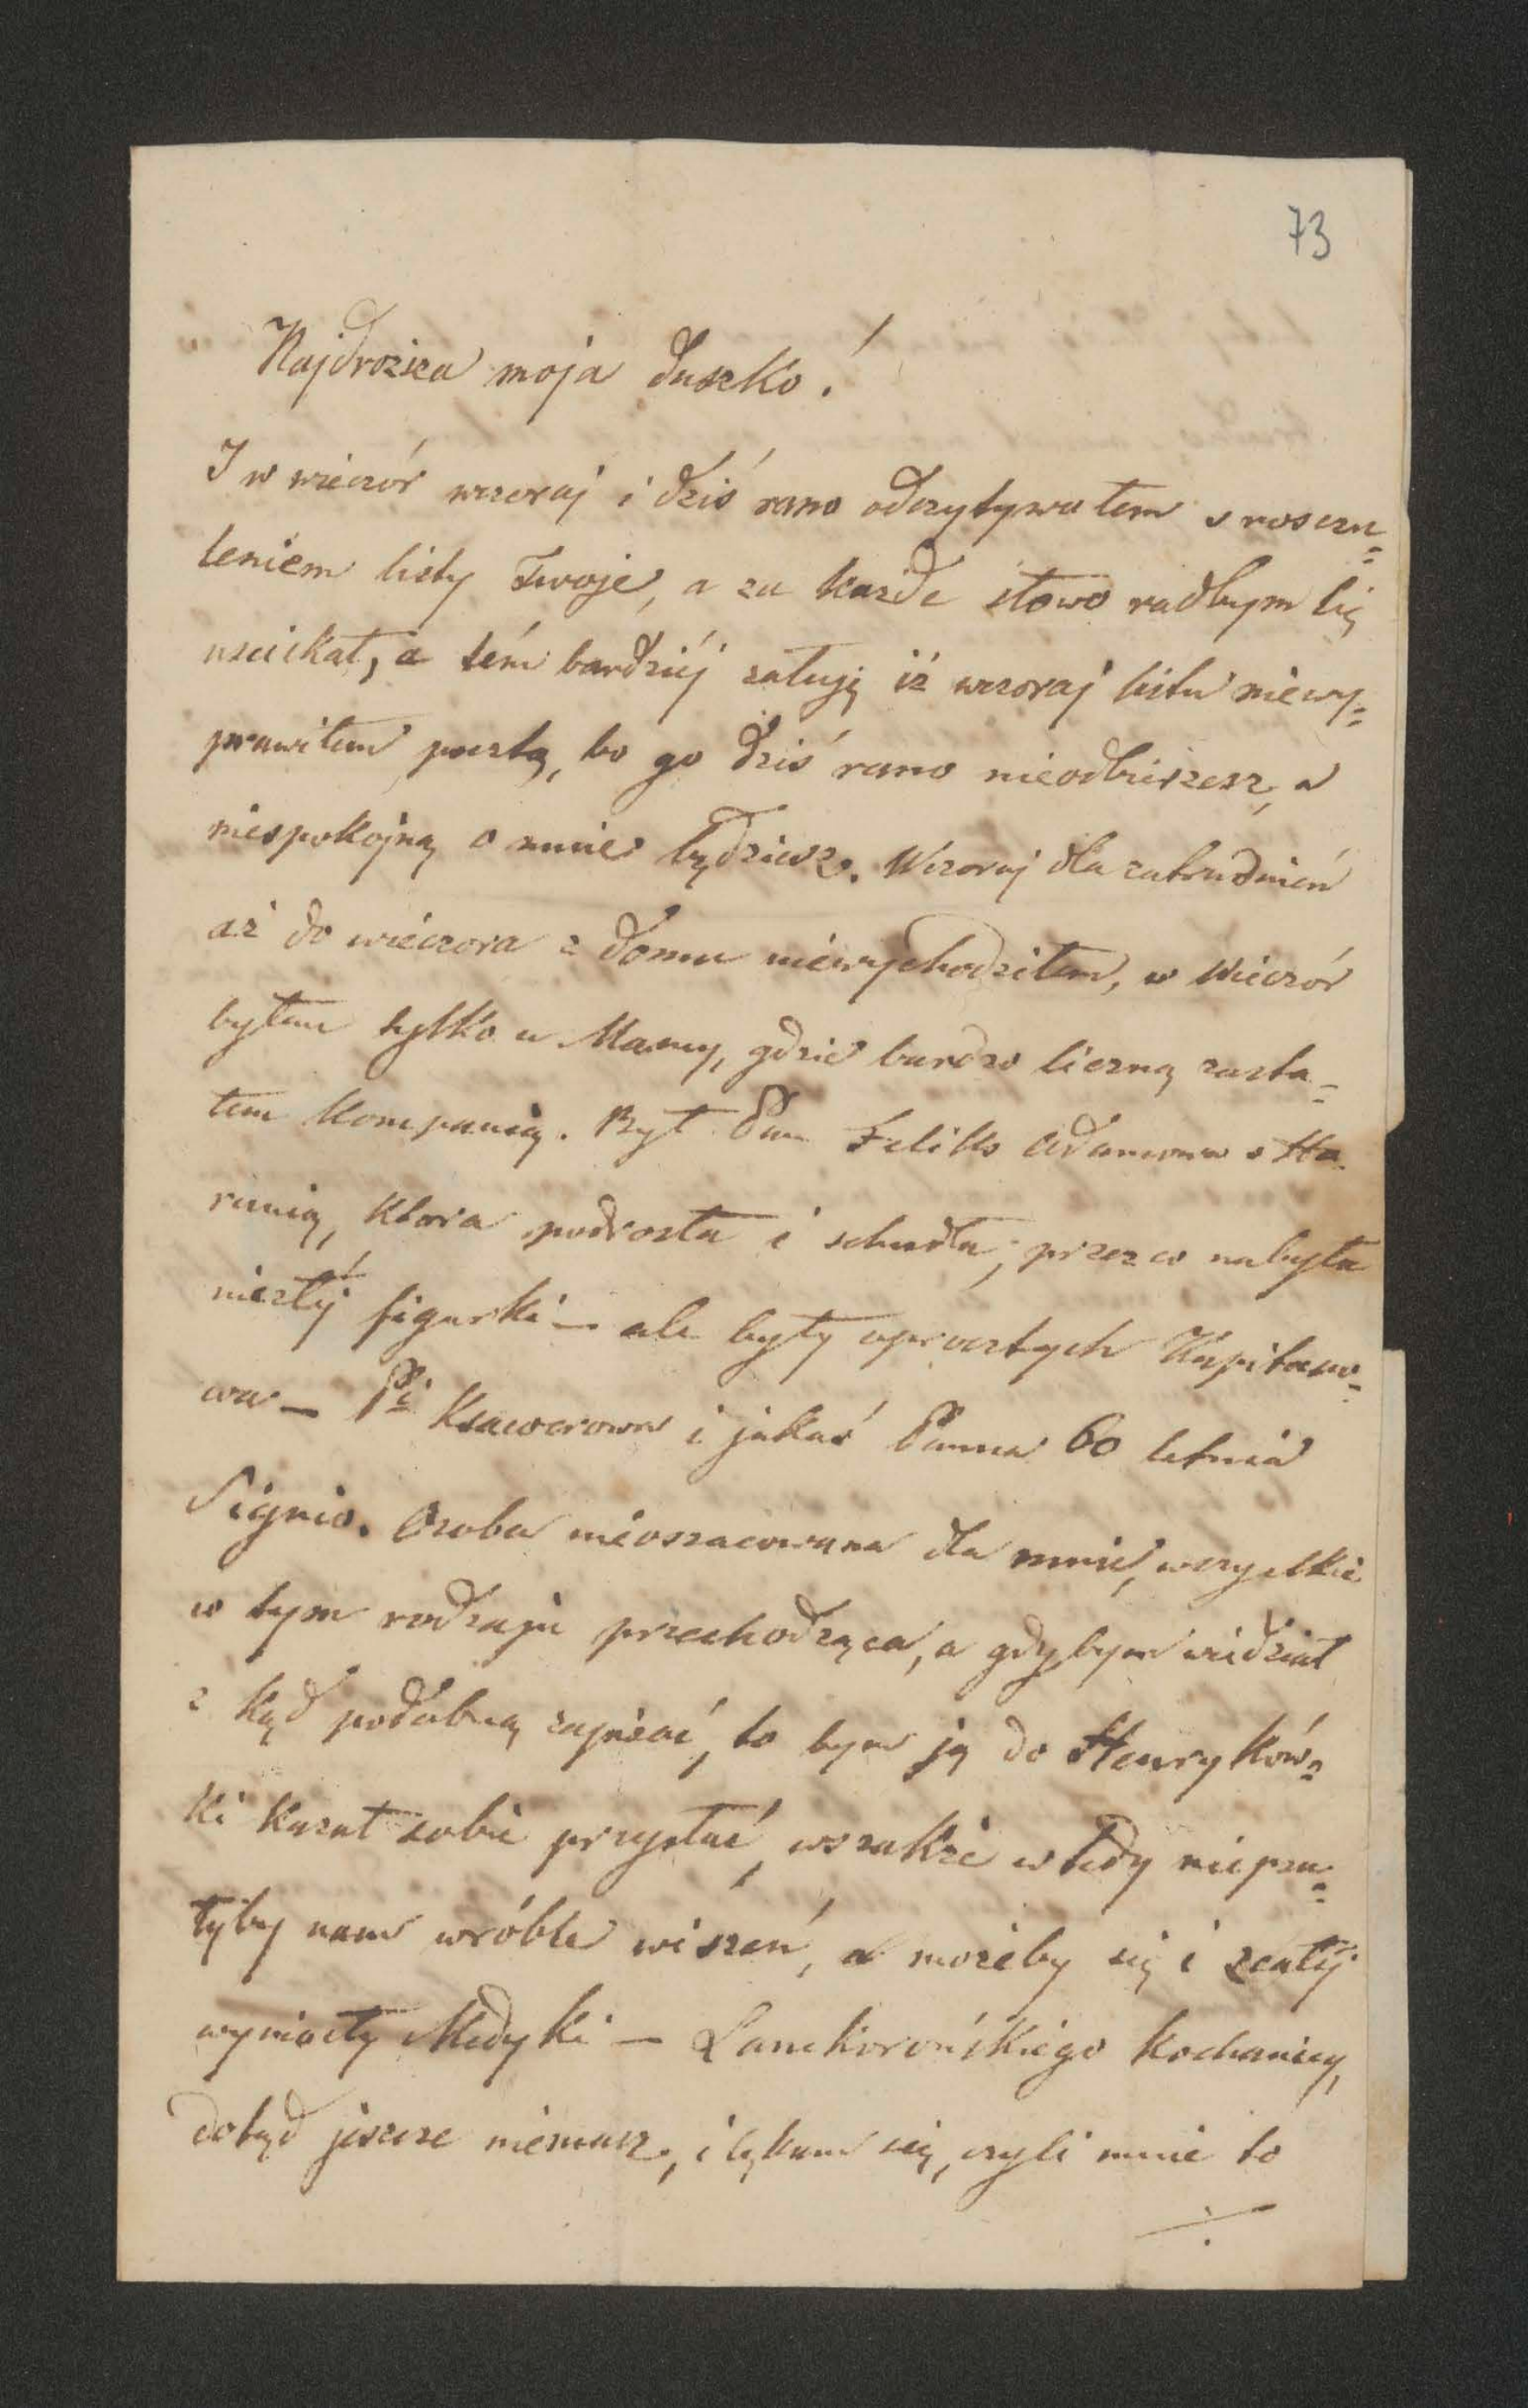 73
Najdrozsza moja Duszko!
I w wieczór wczoraj i dziś rano odczytywałem s roszczu=
leniem listy Twoje, a za każde słowo radbym Cię
uscickał, a tém bardziéj załuję iż wczoraj listu niewy=
prawiłem pocztą, bo go dziś rano nieodbierzesz, a
niespokojną o mnie będziesz. Wczoraj dla zatrudnień
aż do wieczora z domu niewychodziłem, w Wieczór
byłem tylko u Mamy, gdzie bardzo liczną zasta=
łem Kompanią. Był Pan Feliks Adamowa s Ka
runią, Ktora podrosła i schudła, przez co nabyła
niezłéj figurki – ale były oprocztych Kapitano=
wa – Pi Ksawerowa i jakaś Panna 60 letnia
Signio. Osoba nieoszacowana dla mnie, wszystkie
w tym rodzaju przechodząca, a gdybym widział
z kąd podobną zapisać, to bym ją do Henryków=
ki Kazał sobie przysłać, wszakże wtedy niepsu=
łyby nam wróble wiszeń, a możeby się i zcałéj
wyniosły Medyki – Lanckorońskiego kochanicy,
dotąd jeszcze niemasz, i lękam się, czyli mnie to
÷